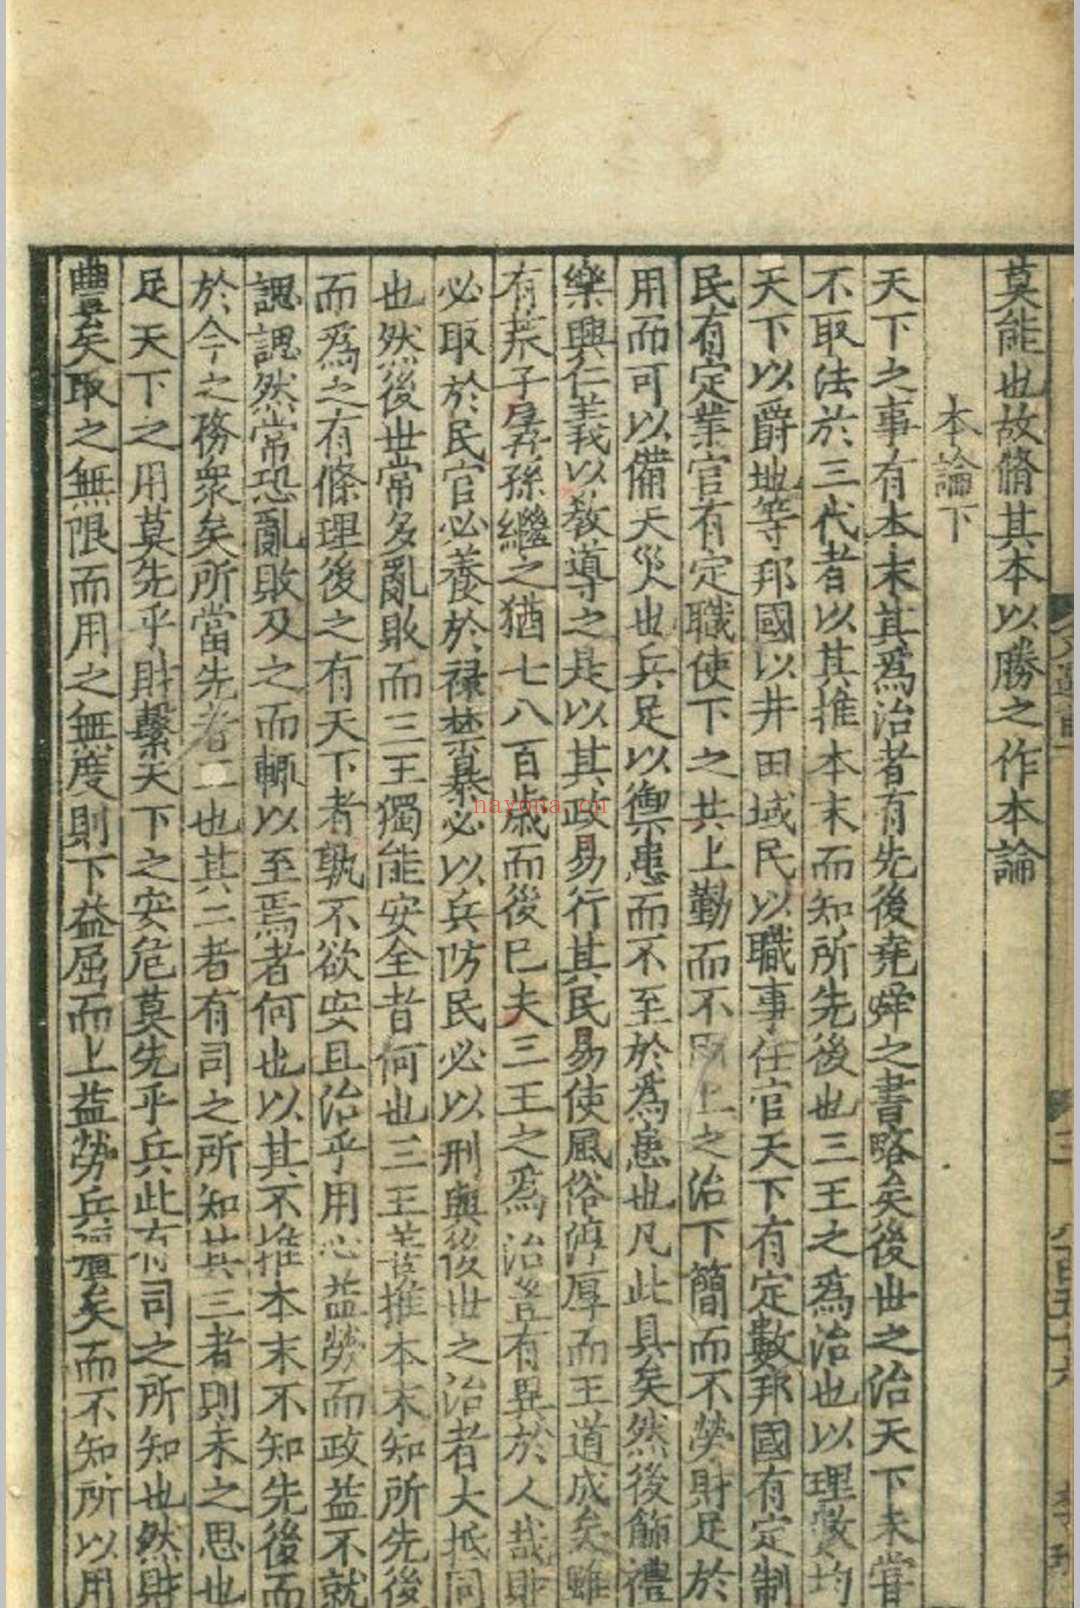 莫能也故脩其本以勝之作本論
本論下
天下之事有本末其爲治者有先後堯舜之書略矣後世之治天下未嘗
不取法於三代者以其推本末而知所先後也三王之爲治也以理數均
天下以爵地等邦國以井田域民以職事任官天下有定數邦國有定制
民有定業官有定職使下之共上勤而不困上之治下簡而不勞財足於
用而可以備天災也兵足以禦患而不至於爲患也凡此具矣然後飾禮
樂興仁義以敎導之是以其政易行其民易使風俗淳厚而王道成矣雖
有荒子孱孫繼之猶七八百歲而後已夫三王之爲治豈有異於人哉財
必取於民官必養於祿禁暴必以兵防民必以刑與後世之治者大抵同
也然後世常多亂敗而三王獨能安全者何也三王善推本末知所先後
而爲之有條理後之有天下者孰不欲安且治乎用心益勞而政益不就
諰諰然常恐亂敗及之而輒以至焉者何也以其不推本末不知先後而
於今之務衆矣所當先者也其二者有司之所知其三者則未之思也
足天下之用莫先乎財繫天下之安危莫先乎兵此有司之所知也然財
豐矣取之無限而用之無度則下益屈而上益勞兵矣而不知所以用
hayona.cn